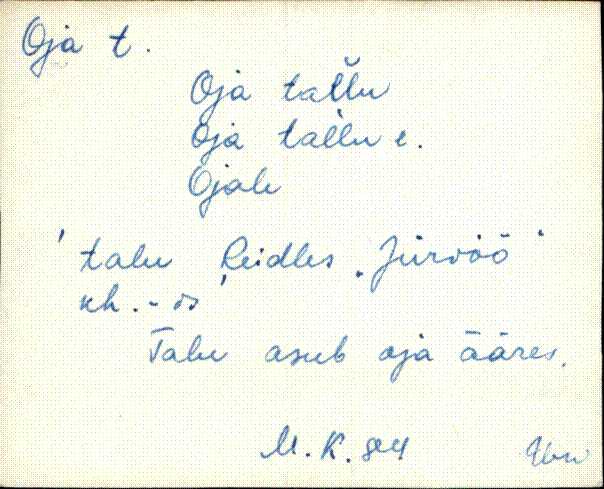 Oja t.
Oja tallu
Oja tallu e.
Ojalt
talu Reidles „Jürvöö"
kh. -is
Talu asub oja ääres.
M.K. 84